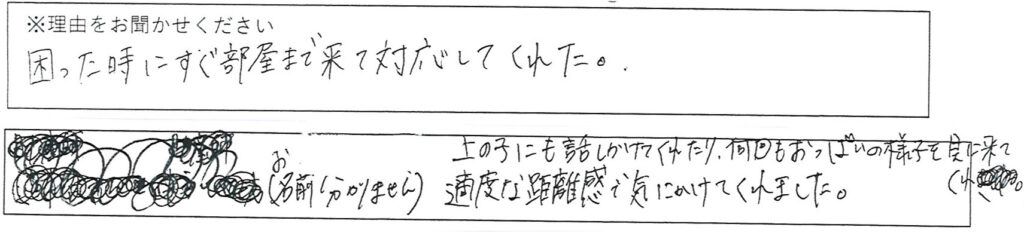 ※理由をお聞かせください
困った時にすぐ部屋まで来て対応してくれた。
上の子にも話しかけてくれたり、何回もおっぱいの様子を見に来て
くれ
(お名前分かりません) 適度な距離感で気にかけてくれました。